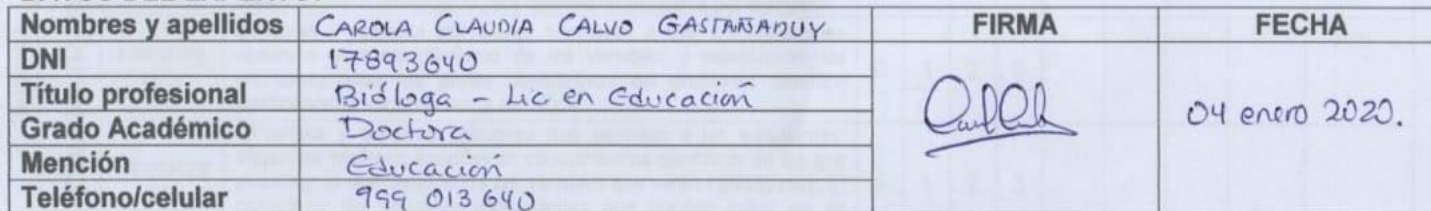 Nombres y apellidos CAROLA CLAUDIA CALVO GASTAÑADUY FIRMA FECHA
DNI 17893640
Título profesional Bióloga - Lic en Educación
Grado Académico Doctora
Mención Educación
Teléfono/celular 999 013 640
04 enero 2020.